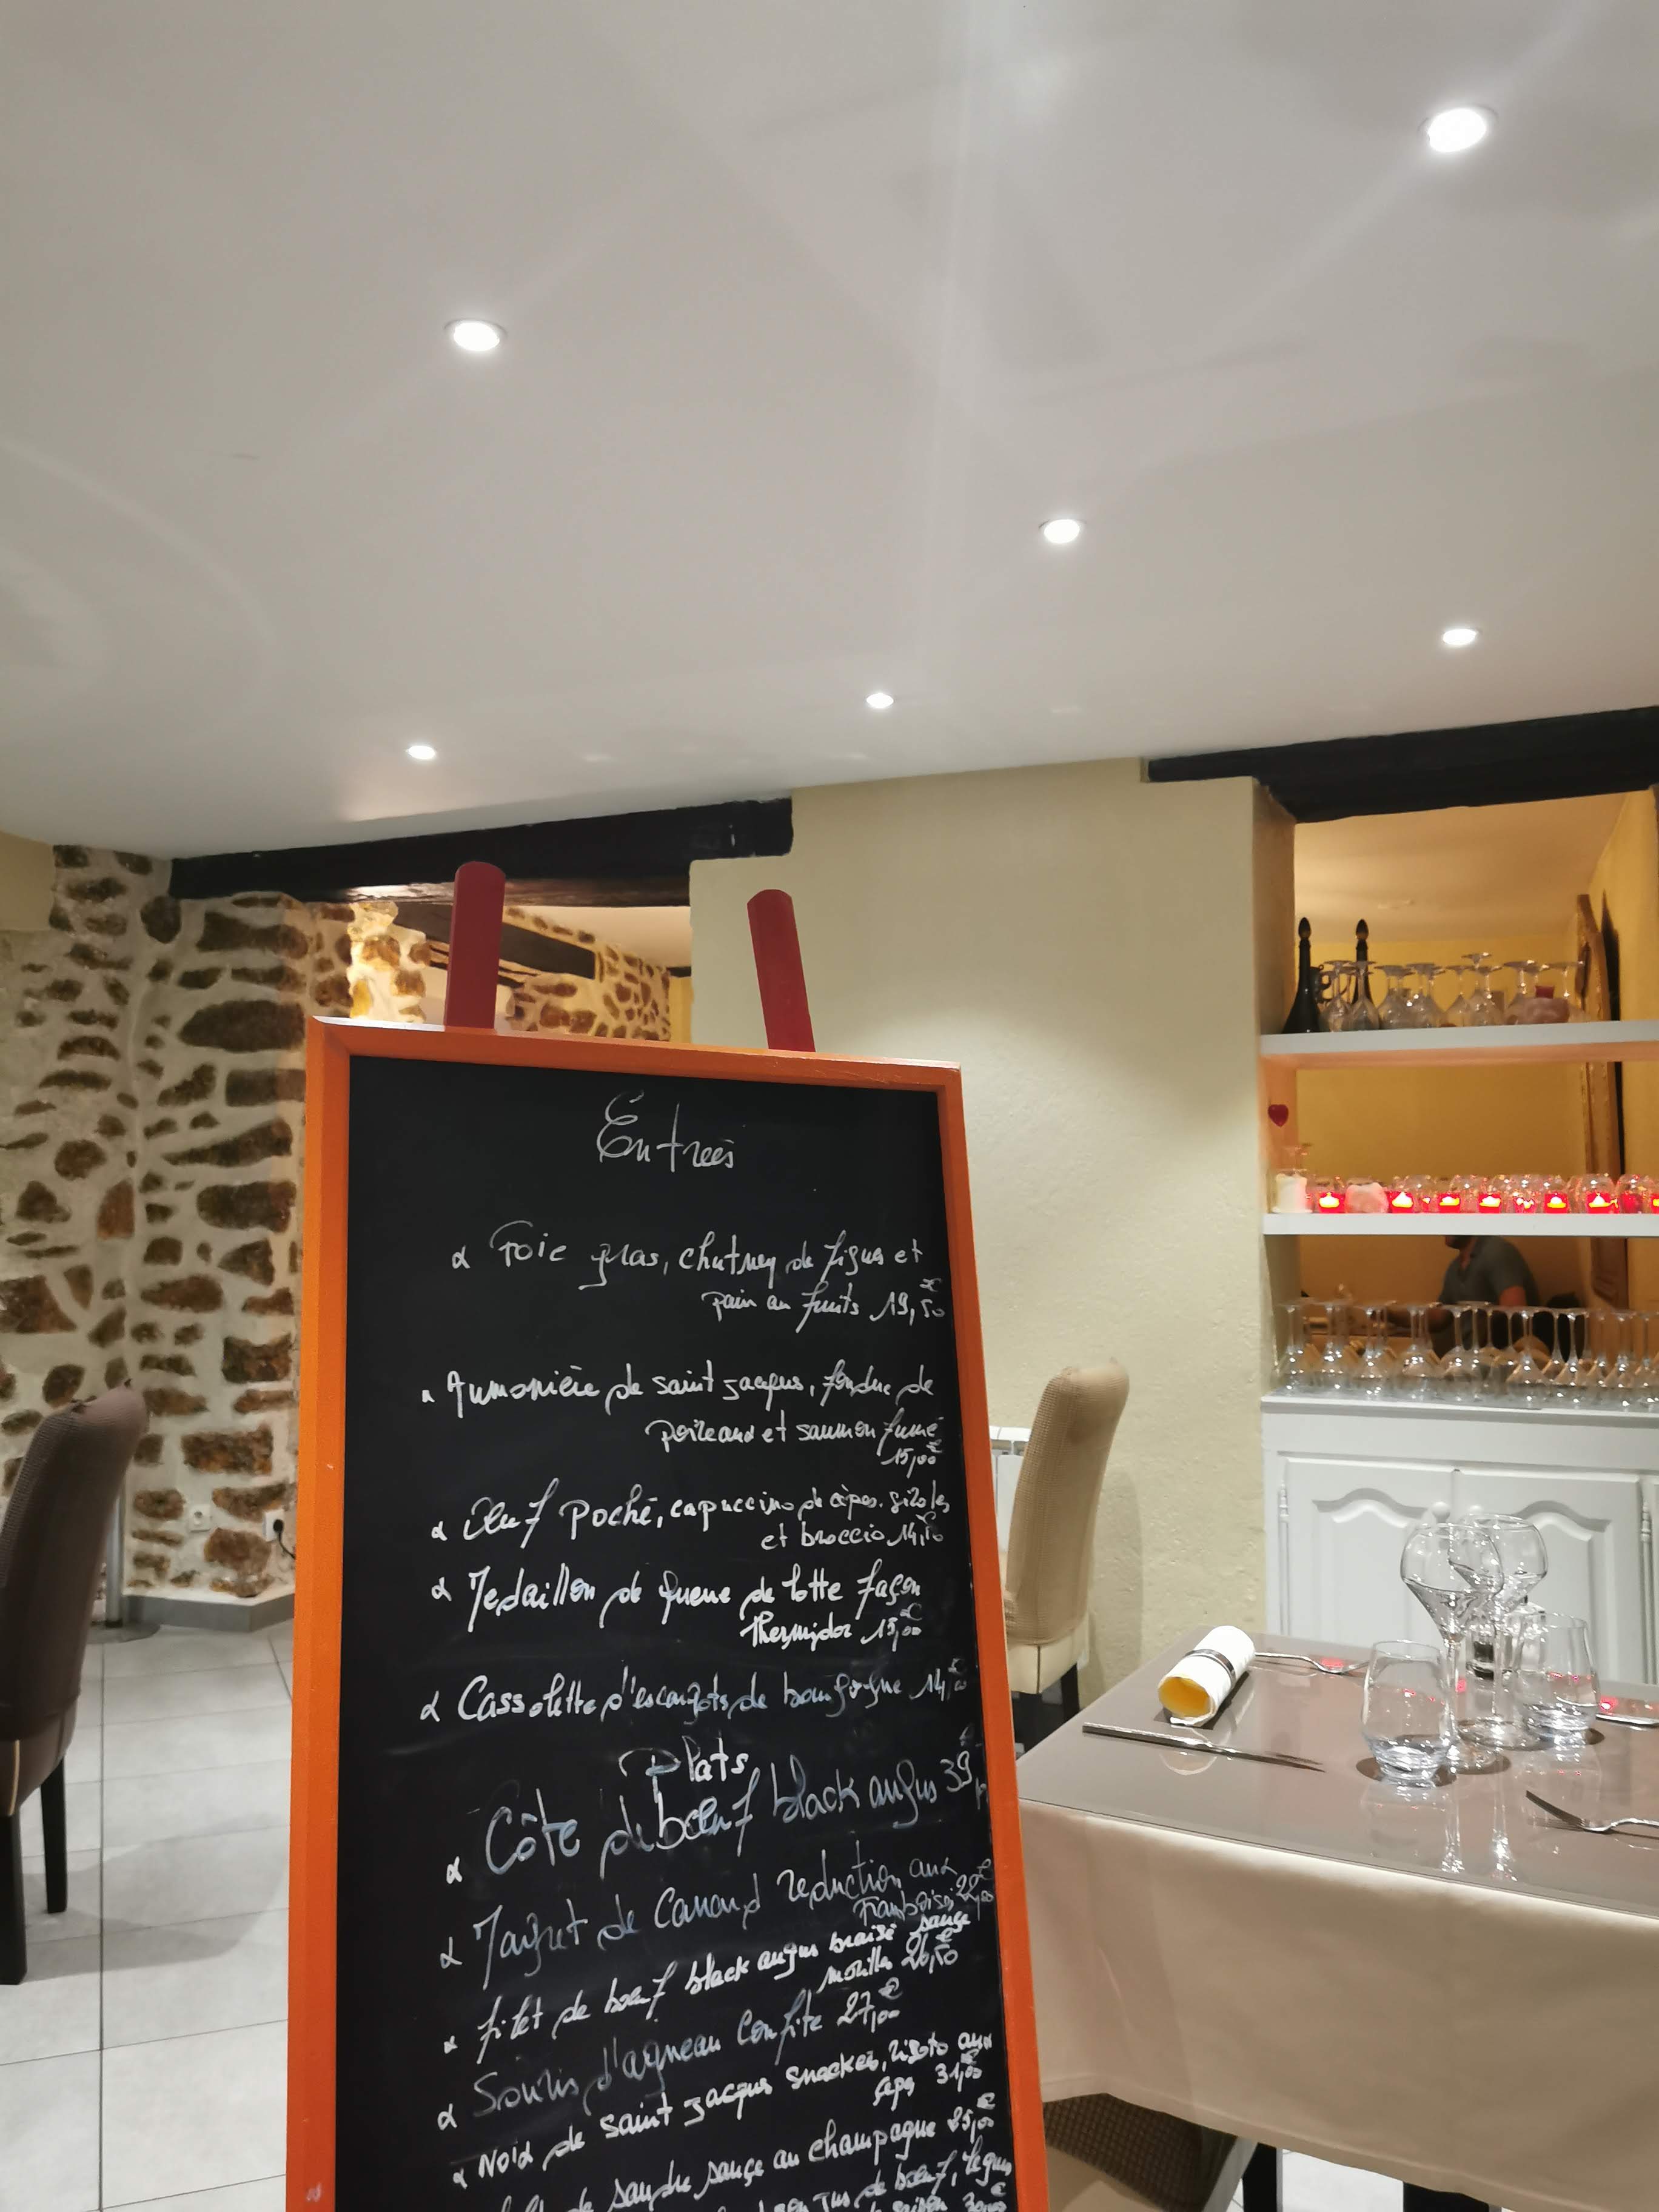 Entreés
Foie gras, chutney de figues et
pain au fruits 19,50€
Aumonière de saint jacques, fondue de
poireaux et saumon fumé
15,00€
Œuf Poché, capuccino de cèpes. girolles
et broccio 14,50€
Medaillon de queue de lotte façon
thermidor 15,00€
Cassolette d'escargots de bourgogne 14,00€
Plats
Côte de bœuf black angus 39€
Magret de Canard reduction aux
Framboises 22,00€
filet de bœuf black angus braisé sauce
morilles 26,50€
Souris d'agneau Confite 27,00€
Noix de saint jacques snackées, risoto aux
ceps 31,00€
de sandre sauce au champagne 25,00€
son jus de bœuf, legumes
de saison 30,00€